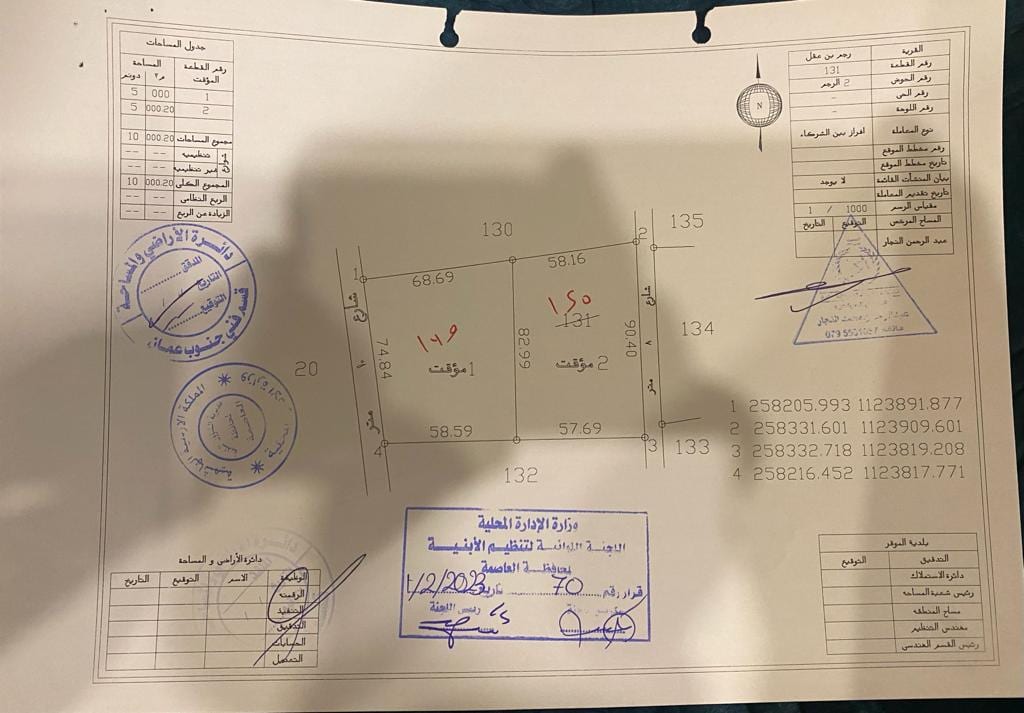 جدول المساحات
رقم القطعة المؤقت
المساحة
م٢
دونم
1 000 5
2 000.20 5
مجموع المساحات 000.20 10
تنظيمية -- --
غير تنظيمية -- --
المجموع الكلي 000.20 10
الربع النظامي -- --
الزيادة عن الربع -- --
القرية رجم بن عقل
رقم القطعة 131
رقم الحوض 2 الرجم
رقم الحي -
رقم اللوحة -
نوع المعاملة افراز بين الشركاء
رقم مخطط الموقع
تاريخ مخطط الموقع
بيان المنشآت القائمة لا يوجد
تاريخ تقديم المعاملة
مقياس الرسم 1000 / 1
المساح المرخص التوقيع التاريخ
عبد الرحمن النجار
N
دائرة الأراضي والمساحة
المدقق
التاريخ
التوقيع
قسم فني جنوب عمان
المملكة الاردنية الهاشمية
079
130
135
2
1
68.69
58.16
شارع
شارع
١٥٠
131
١٤٩
134
20
74.84
82.99
90.40
١٠
٧
مؤقت 1
مؤقت 2
متر
متر
58.59
57.69
4
3
133
132
1 258205.993 1123891.877
2 258331.601 1123909.601
3 258332.718 1123819.208
4 258216.452 1123817.771
وزارة الإدارة المحلية
اللجنة اللوائية لتنظيم الأبنية
بحافظة العاصمة
قرار رقم 70 تاريخ 1/2/2023
رئيس اللجنة
دائرة الأراضي و المساحة
الوظيفة الاسم التوقيع التاريخ
الرقمنه
التنفيذ
التدقيق
الحسابات
التعديل
بلدية الموقر
التدقيق التوقيع
دائرة الاستملاك
رئيس شعبة المساحه
مساح المنطقه
مهندس التنظيم
رئيس القسم الهندسي